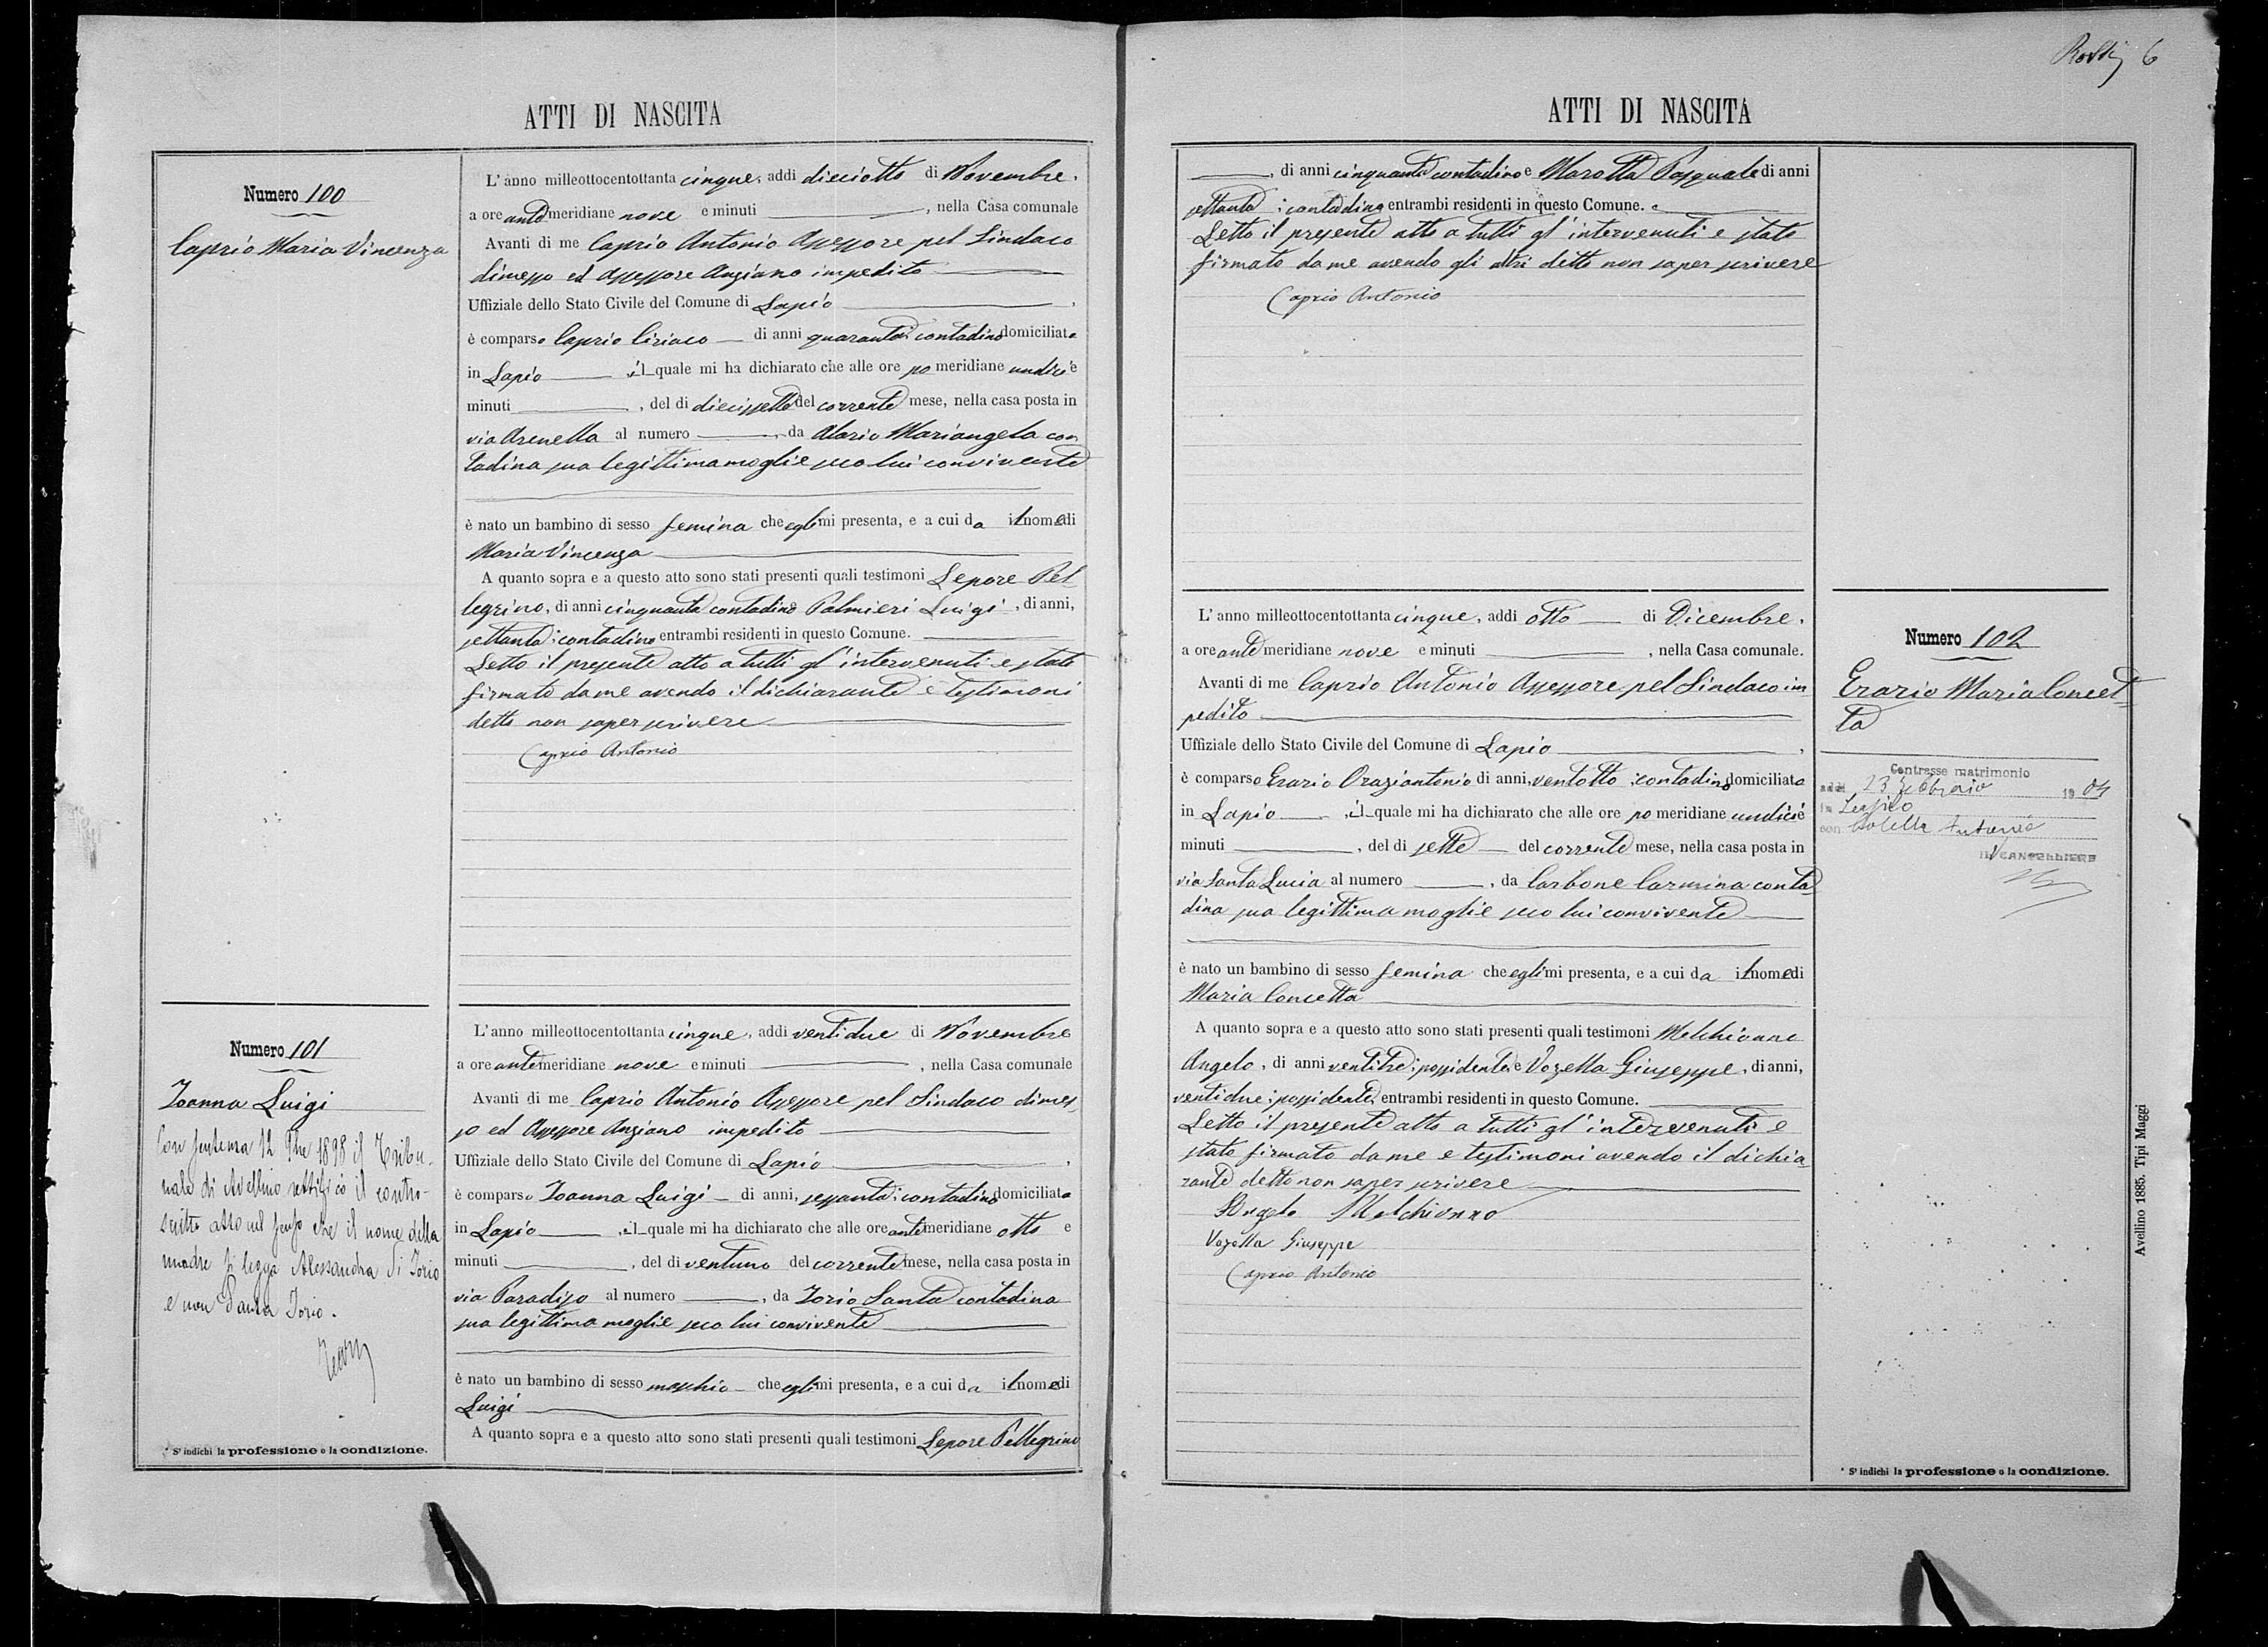 6
ATTI DI NASCITA
Numero 100
Caprio Maria Vincenza
L'anno milleottocentottanta cinque, addi dieciotto di Novembre,
a ore antemeridiane nove e minuti , nella Casa comunale
Avanti di me Caprio Antonio Assessore pel Sindaco
dimesso ed Assessore Anziano impedito
Uffiziale dello Stato Civile del Comune di Lapio,
è comparso Caprio Ciriaco di anni quaranta; contadino domiciliato
in Lapio, il quale mi ha dichiarato che alle ore po meridiane undici e
minuti , del di diecissette del corrente mese, nella casa posta in
via Arenella al numero , da Alario Mariangela con
tadina sua legittima moglie seco lui convivente
è nato un bambino di sesso femina che egli mi presenta, e a cui da il nome di
Maria Vincenza
A quanto sopra e a questo atto sono stati presenti quali testimoni Lepore Pel
legrino, di anni cinquanta contadino Palmieri Luigi, di anni,
settanta; contadino entrambi residenti in questo Comune.
Letto il presente atto a tutti gl'intervenuti e stato
firmato da me avendo il dichiarante e testimoni
detto non saper scrivere
Caprio Antonio
Numero 101
Ioanna Luigi
Con sentenza 12 9bre 1898 il Tribu-
nale di Avellino rettificò il contro-
scritto atto nel senso che il nome della
madre si legga Alessandra di Iorio
e non Santa Iorio.
L'anno milleottocentottanta cinque, addi ventidue di Novembre
a ore antemeridiane nove e minuti , nella Casa comunale
Avanti di me Caprio Antonio Assessore pel Sindaco dimes
so ed Assessore Anziano impedito
Uffiziale dello Stato Civile del Comune di Lapio,
è comparso Ioanna Luigi di anni, sessanta; contadino domiciliato
in Lapio, il quale mi ha dichiarato che alle ore antemeridiane otto e
minuti , del di ventuno del corrente mese, nella casa posta in
via Paradiso al numero , da Iorio Santa contadina
sua legittima moglie seco lui convivente
è nato un bambino di sesso maschio che egli mi presenta, e a cui da il nome di
Luigi
A quanto sopra e a questo atto sono stati presenti quali testimoni Lepore Pellegrino
* S'indichi la professione o la condizione.
ATTI DI NASCITA
, di anni cinquanta contadino e Marotta Pasquale di anni
settanta; contadino entrambi residenti in questo Comune.
Letto il presente atto a tutti gl'intervenuti e stato
firmato da me avendo gli altri detto non saper scrivere
Caprio Antonio
Numero 102
Erario Maria Concet-
ta
Contrasse matrimonio
addi 23 febbraio 1904
in
con
IL CANCELLIERE
L'anno milleottocentottanta cinque, addi otto di Dicembre,
a ore antemeridiane nove e minuti , nella Casa comunale.
Avanti di me Caprio Antonio Assessore pel Sindaco im
pedito
Uffiziale dello Stato Civile del Comune di Lapio,
è comparso Erario Oraziantonio di anni, ventotto; contadino domiciliato
in Lapio, il quale mi ha dichiarato che alle ore po meridiane undici e
minuti , del di sette del corrente mese, nella casa posta in
via Santa Lucia al numero , da Carbone Carmina conta
dina sua legittima moglie seco lui convivente
è nato un bambino di sesso femina che egli mi presenta, e a cui da il nome di
Maria Concetta
A quanto sopra e a questo atto sono stati presenti quali testimoni Melchionno
Angelo, di anni ventitre; possidente e Vozella Giuseppe, di anni,
ventidue; possidente, entrambi residenti in questo Comune.
Letto il presente atto a tutti gl'intervenuti e
stato firmato da me e testimoni avendo il dichia
rante detto non saper scrivere
Angelo Melchionno
Vozella Giuseppe
Caprio Antonio
* S'indichi la professione o la condizione.
Avellino 1885, Tipi Maggi